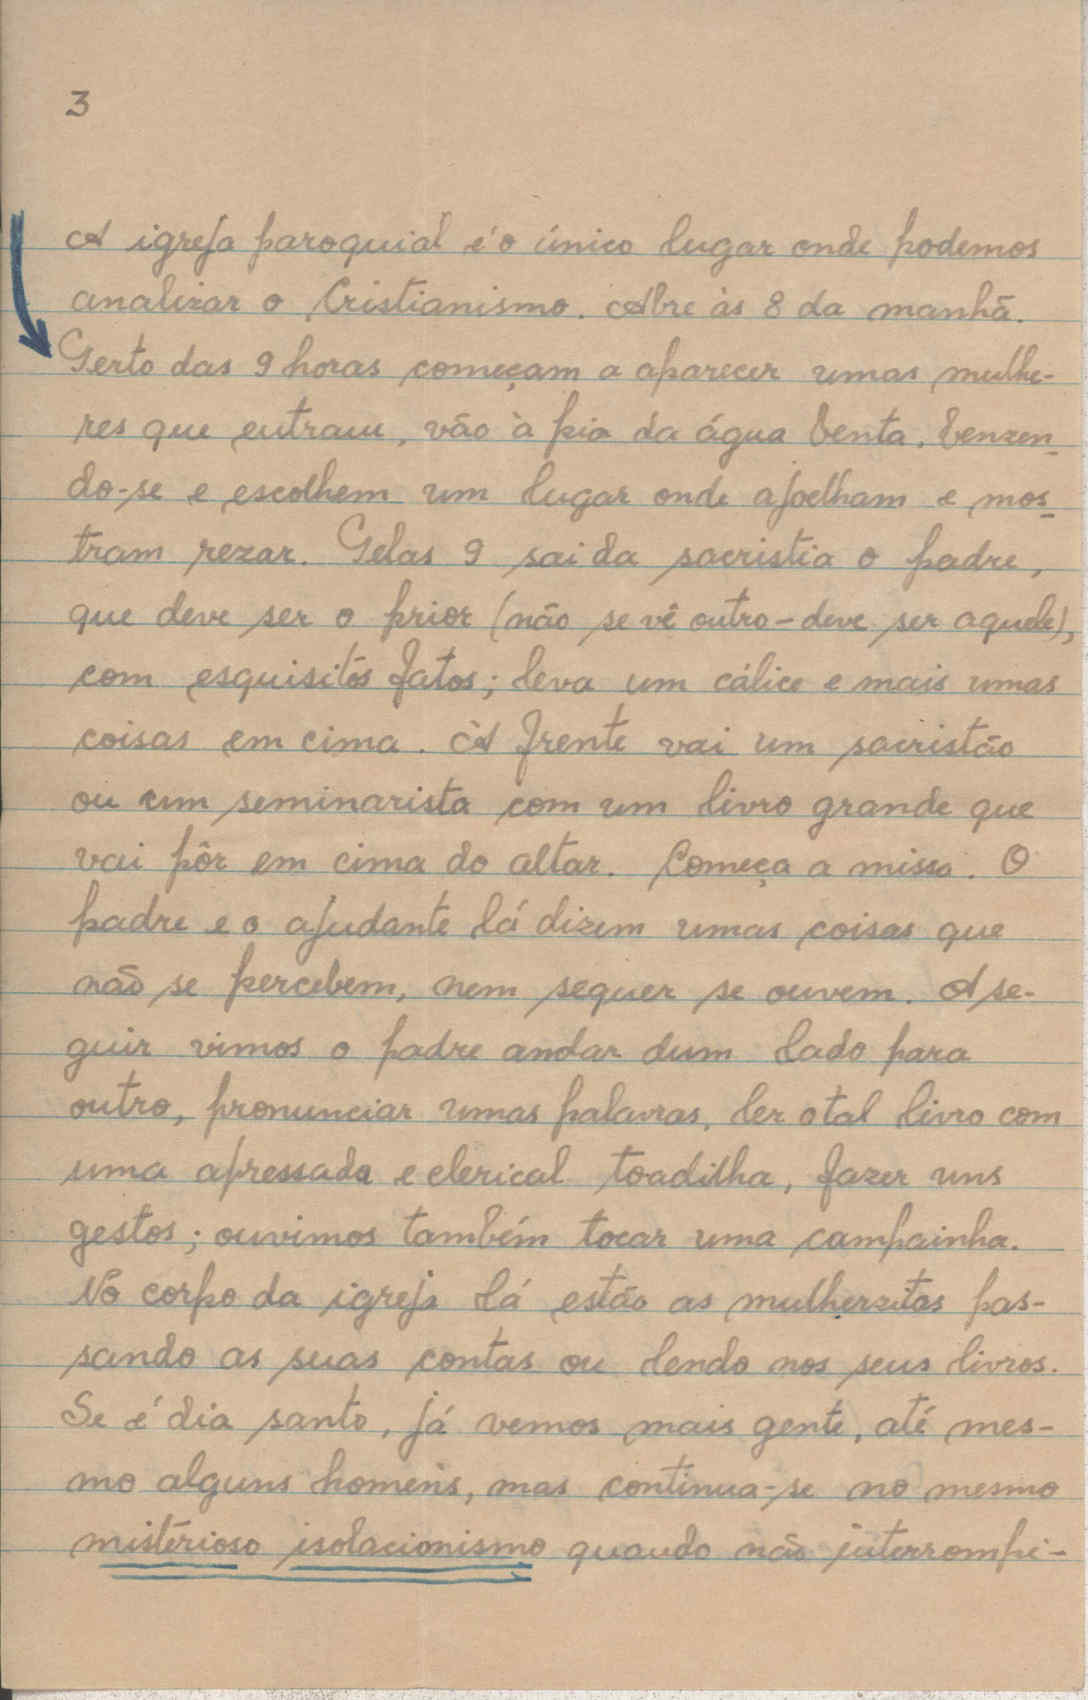 3
A igreja paroquial é o único lugar onde podemos
analizar o Cristianismo. Abre às 8 da manhã.
Perto das 9 horas começam a aparecer umas mulhe-
res que entram, vão à pia da água benta, benzen-
do-se e escolhem um lugar onde ajoelham e mos-
tram rezar. Pelas 9 sai da sacristia o padre,
que deve ser o prior (não se vê outro - deve ser aquele),
com esquisitos fatos; leva um cálice e mais umas
coisas em cima. À frente vai um sacristão
ou um seminarista com um livro grande que
vai pôr em cima do altar. Começa a missa. O
padre e o ajudante lá dizem umas coisas que
não se percebem, nem sequer se ouvem. A se-
guir vimos o padre andar dum lado para
outro, pronunciar umas palavras, ler o tal livro com
uma apressada e clerical toadilha, fazer uns
gestos; ouvimos também tocar uma campainha.
No corpo da igreja lá estão as mulherzitas pas-
sando as suas contas ou lendo nos seus livros.
Se é dia santo, já vemos mais gente, até mes-
mo alguns homens, mas continua-se no mesmo
mistérioso isolacionismo quando não interrompi-